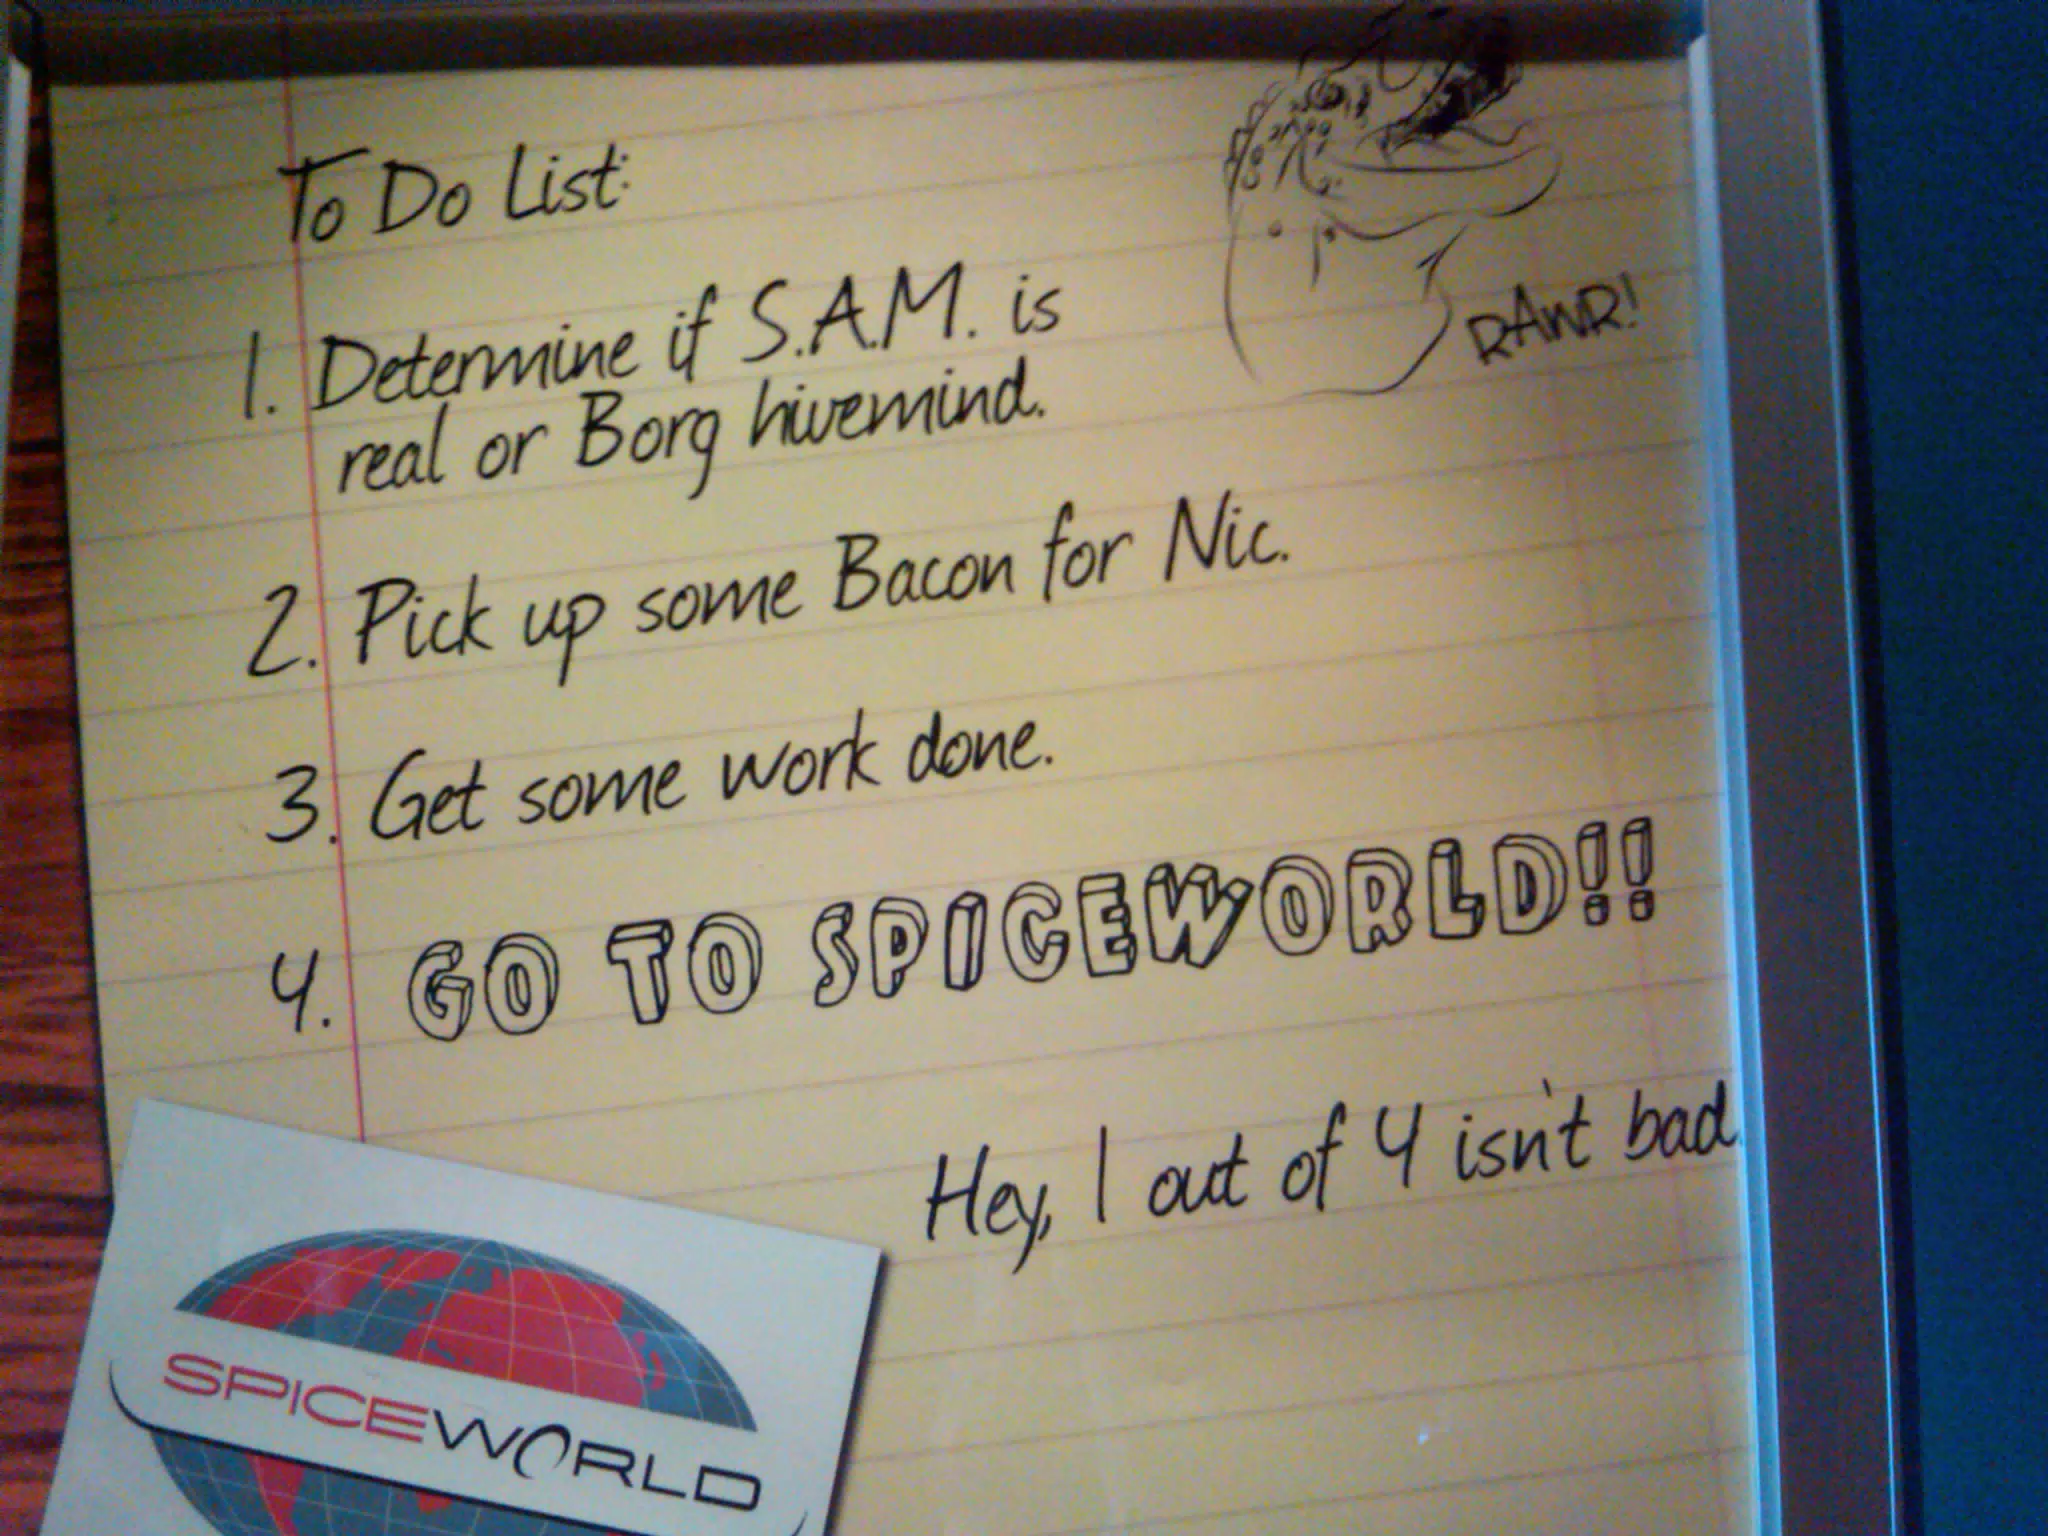 To Do List:
RAWR!
1. Determine if S.A.M. is
real or Borg hivemind.
2. Pick up some Bacon for Nic.
3. Get some work done.
4. GO TO SPICEWORLD!!
Hey, 1 out of 4 isn't bad.
SPICEWORLD